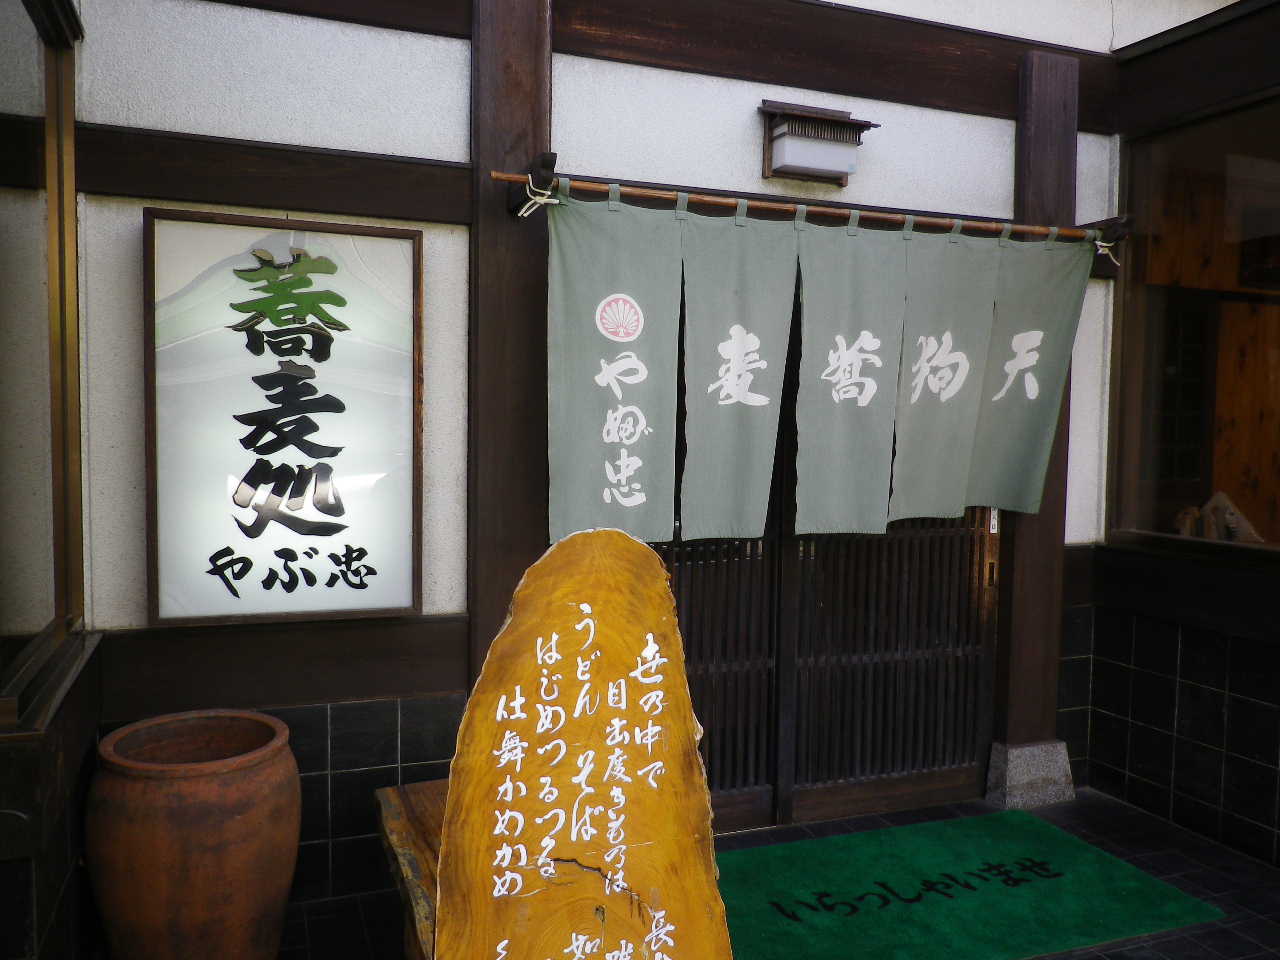 蕎麦処
やぶ忠
天狗蕎麦
やぶ忠
世の中で
目出度きものは
うどん そば
はじめつるつる
仕舞かめかめ
長
如
いらっしゃいませ